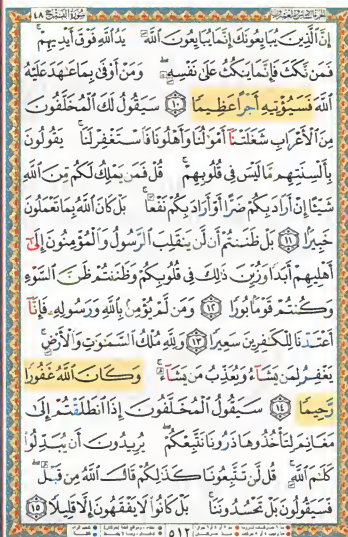 سُورَةُ الفَتْحِ ٤٨
إِنَّ ٱلَّذِينَ يُبَايِعُونَكَ إِنَّمَا يُبَايِعُونَ ٱللَّهَ يَدُ ٱللَّهِ فَوْقَ أَيْدِيهِمْ
فَمَن نَّكَثَ فَإِنَّمَا يَنكُثُ عَلَىٰ نَفْسِهِۦ وَمَنْ أَوْفَىٰ بِمَا عَٰهَدَ عَلَيْهُ
ٱللَّهَ فَسَيُؤْتِيهِ أَجْرًا عَظِيمًا ١٠ سَيَقُولُ لَكَ ٱلْمُخَلَّفُونَ
مِنَ ٱلْأَعْرَابِ شَغَلَتْنَآ أَمْوَٰلُنَا وَأَهْلُونَا فَٱسْتَغْفِرْ لَنَا يَقُولُونَ
بِأَلْسِنَتِهِم مَّا لَيْسَ فِى قُلُوبِهِمْ قُلْ فَمَن يَمْلِكُ لَكُم مِّنَ ٱللَّهِ
شَيْـًٔا إِنْ أَرَادَ بِكُمْ ضَرًّا أَوْ أَرَادَ بِكُمْ نَفْعًۢا بَلْ كَانَ ٱللَّهُ بِمَا تَعْمَلُونَ
خَبِيرًۢا ١١ بَلْ ظَنَنتُمْ أَن لَّن يَنقَلِبَ ٱلرَّسُولُ وَٱلْمُؤْمِنُونَ إِلَىٰٓ
أَهْلِيهِمْ أَبَدًا وَزُيِّنَ ذَٰلِكَ فِى قُلُوبِكُمْ وَظَنَنتُمْ ظَنَّ ٱلسَّوْءِ
وَكُنتُمْ قَوْمًۢا بُورًا ١٢ وَمَن لَّمْ يُؤْمِنۢ بِٱللَّهِ وَرَسُولِهِۦ فَإِنَّآ
أَعْتَدْنَا لِلْكَٰفِرِينَ سَعِيرًا ١٣ وَلِلَّهِ مُلْكُ ٱلسَّمَٰوَٰتِ وَٱلْأَرْضِ
يَغْفِرُ لِمَن يَشَآءُ وَيُعَذِّبُ مَن يَشَآءُ وَكَانَ ٱللَّهُ غَفُورًا
رَّحِيمًا ١٤ سَيَقُولُ ٱلْمُخَلَّفُونَ إِذَا ٱنطَلَقْتُمْ إِلَىٰ
مَغَانِمَ لِتَأْخُذُوهَا ذَرُونَا نَتَّبِعْكُمْ يُرِيدُونَ أَن يُبَدِّلُوا۟
كَلَٰمَ ٱللَّهِ قُل لَّن تَتَّبِعُونَا كَذَٰلِكُمْ قَالَ ٱللَّهُ مِن قَبْلُ
فَسَيَقُولُونَ بَلْ تَحْسُدُونَنَا بَلْ كَانُوا۟ لَا يَفْقَهُونَ إِلَّا قَلِيلًا ١٥
٥١٢